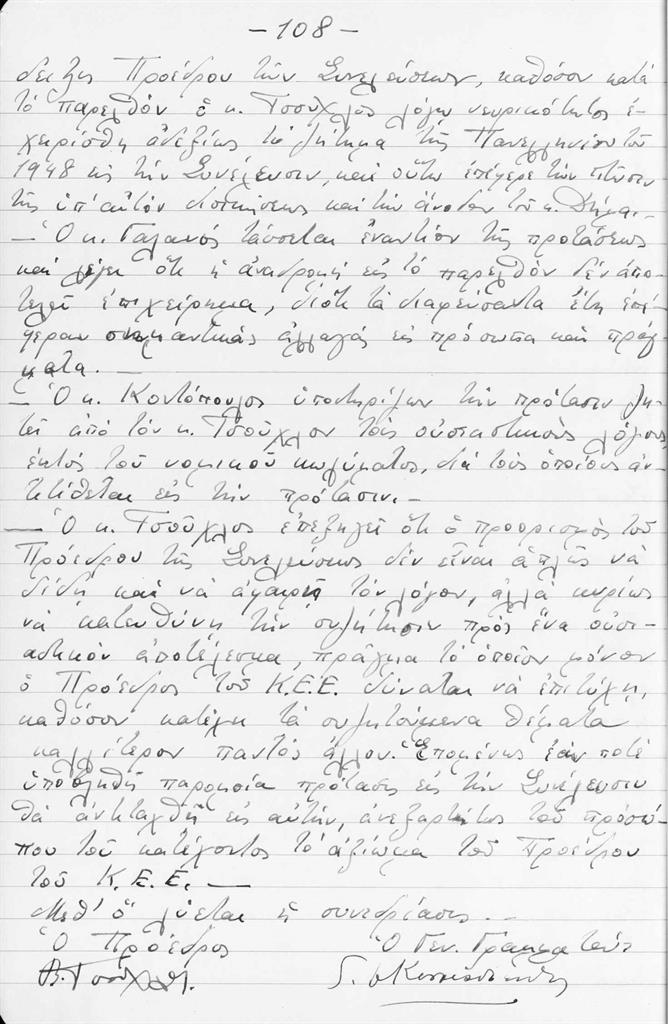 - 108 -
δείξης Προέδρου τῶν Συνελεύσεων, καθόσον κατά
τό παρελθόν ὁ κ. Τσούχλος λόγῳ νευρικότητος ἐ-
χειρίσθη ἀδεξίως τό ζήτημα τῆς Πανελληνίου τοῦ
1948 εἰς τήν Συνέλευσιν, καί οὕτω ἐπέφερε τήν πτῶσιν
τῆς ὑπ' αὐτόν διοικήσεως καί τήν ἄνοδον τοῦ κ. Δήμα. -
— Ὁ κ. Γαλανός τάσσεται ἐναντίον τῆς προτάσεως
καί λέγει ὅτι ἡ ἀναδρομή εἰς τό παρελθόν δέν ἀπο-
τελεῖ ἐπιχείρημα, διότι τά διαρεύσαντα ἔτη ἐπέ-
φεραν σημαντικάς ἀλλαγάς εἰς πρόσωπα καί πράγ-
ματα. —
— Ὁ κ. Κοντόπουλος ὑποστηρίζων τήν πρότασιν ζη-
τεῖ ἀπό τόν κ. Τσοῦχλον τούς οὐσιαστικούς λόγους,
ἐκτός τοῦ νομικοῦ κωλύματος, διά τούς ὁποίους ἀν-
τιτίθεται εἰς τήν πρότασιν. -
— Ὁ κ. Τσοῦχλος ἐπεξηγεῖ ὅτι ὁ προορισμός τοῦ
Προέδρου τῆς Συνελεύσεως δέν εἶναι ἁπλῶς νά
δίδῃ καί νά ἀφαιρῇ τόν λόγον, ἀλλά κυρίως
νά κατευθύνῃ τήν συζήτησιν πρός ἕνα οὐσι-
αστικόν ἀποτέλεσμα, πρᾶγμα τό ὁποῖον μόνον
ὁ Πρόεδρος τοῦ Κ.Ε.Ε. δύναται νά ἐπιτύχῃ,
καθόσον κατέχει τά συζητούμενα θέματα
καλλίτερον παντός ἄλλου. Ἑπομένως ἐάν ποτέ
ὑποβληθῇ παρομοία πρότασις εἰς τήν Συνέλευσιν
θά ἀντιταχθῇ εἰς αὐτήν, ἀνεξαρτήτως τοῦ προσώ-
που τοῦ κατέχοντος τό ἀξίωμα τοῦ Προέδρου
τοῦ Κ.Ε.Ε. —
Μεθ' ὅ λύεται ἡ συνεδρίασις. -
Ὁ Πρόεδρος Ὁ Γεν. Γραμματεύς